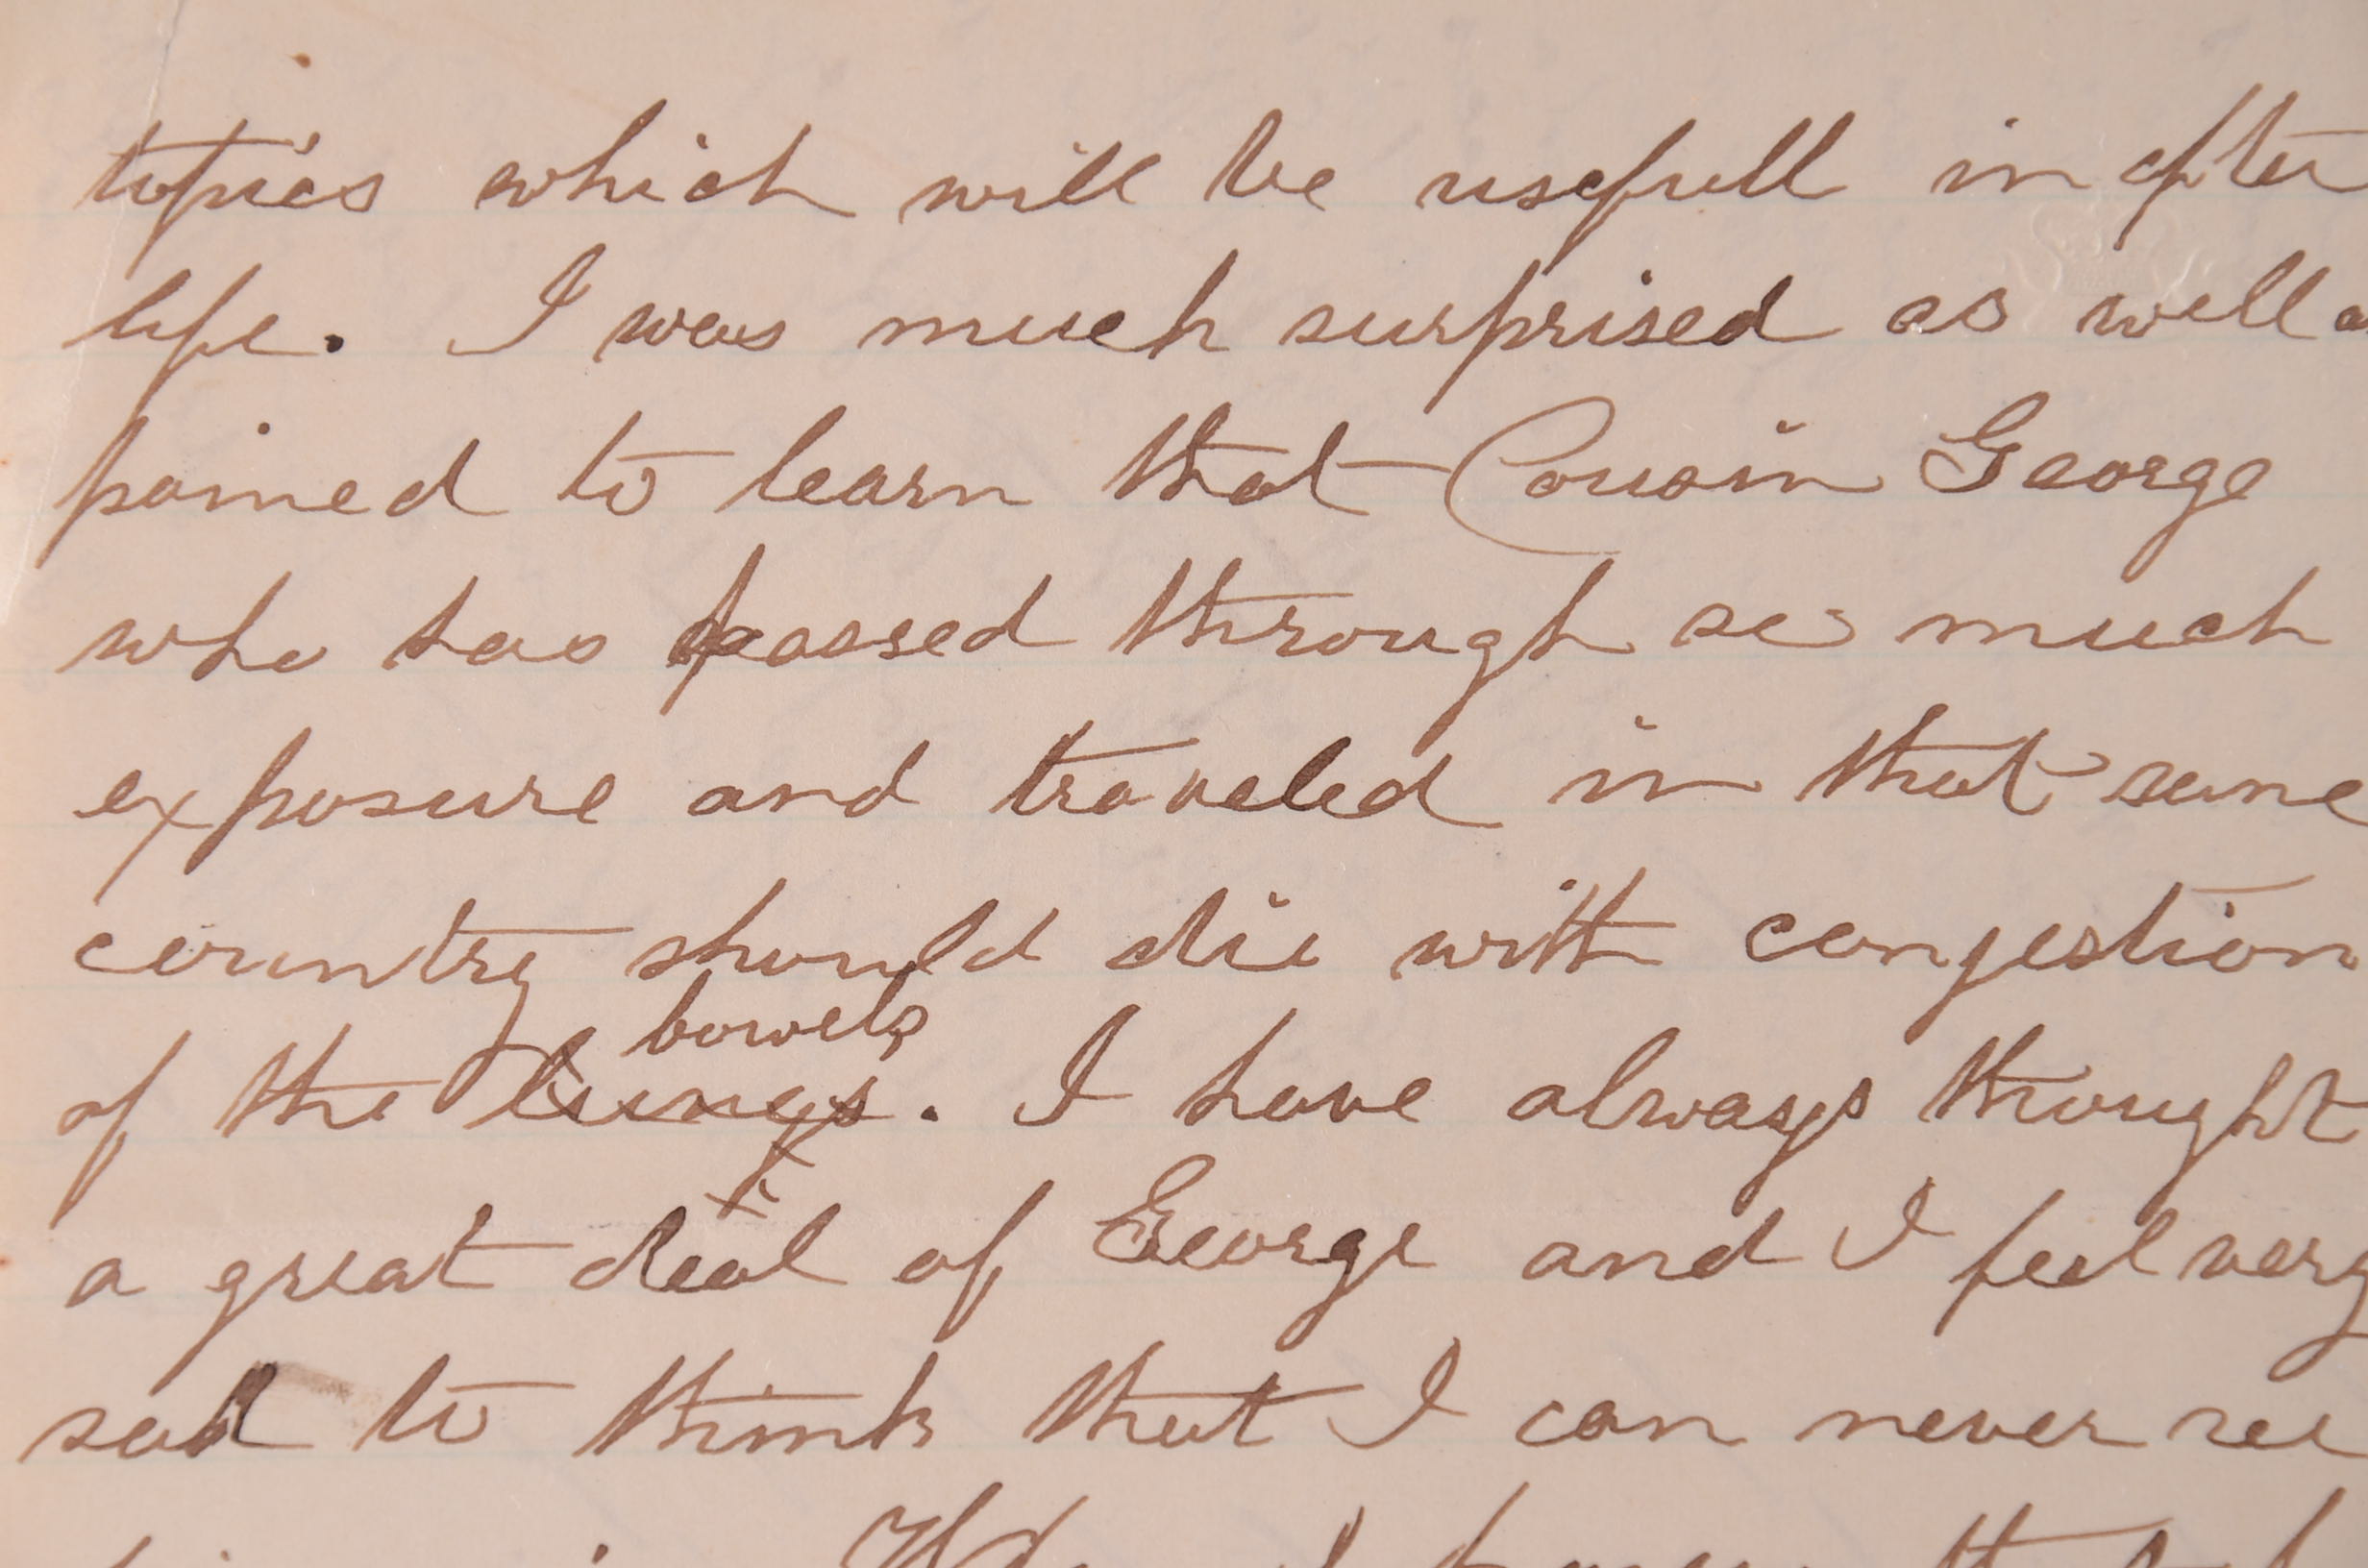 topics which will be usefull in after
life. I was much surprised as well a
pained to learn that Cousin George
who has passed through so much
exposure and traveled in that same
country should die with congestion
bowels
of the lungs. I have always thought
a great deal of George and I feel very
sad to think that I can never see